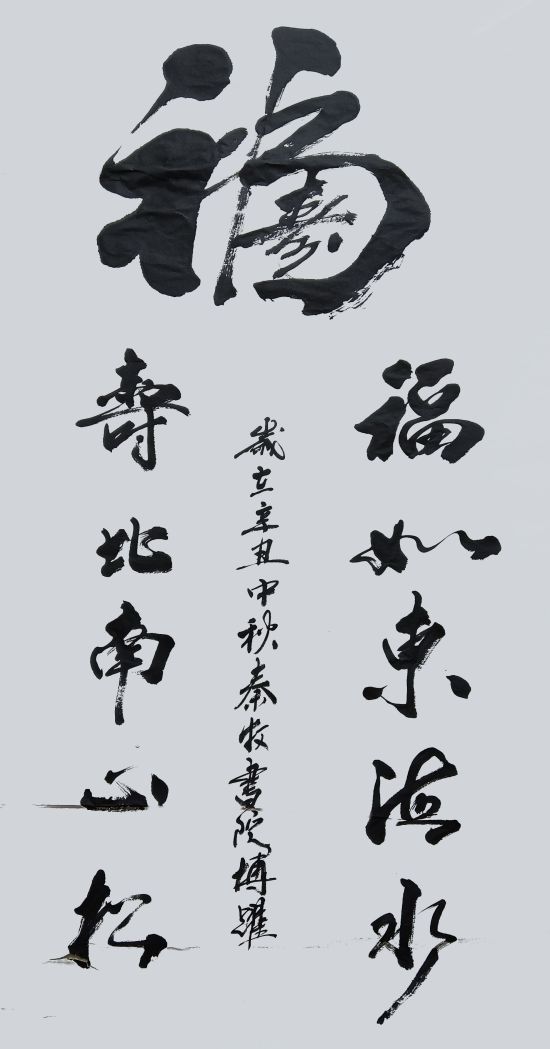 福
福如東海水
壽比南山松
歲立辛丑中秋秦牧書院博躍